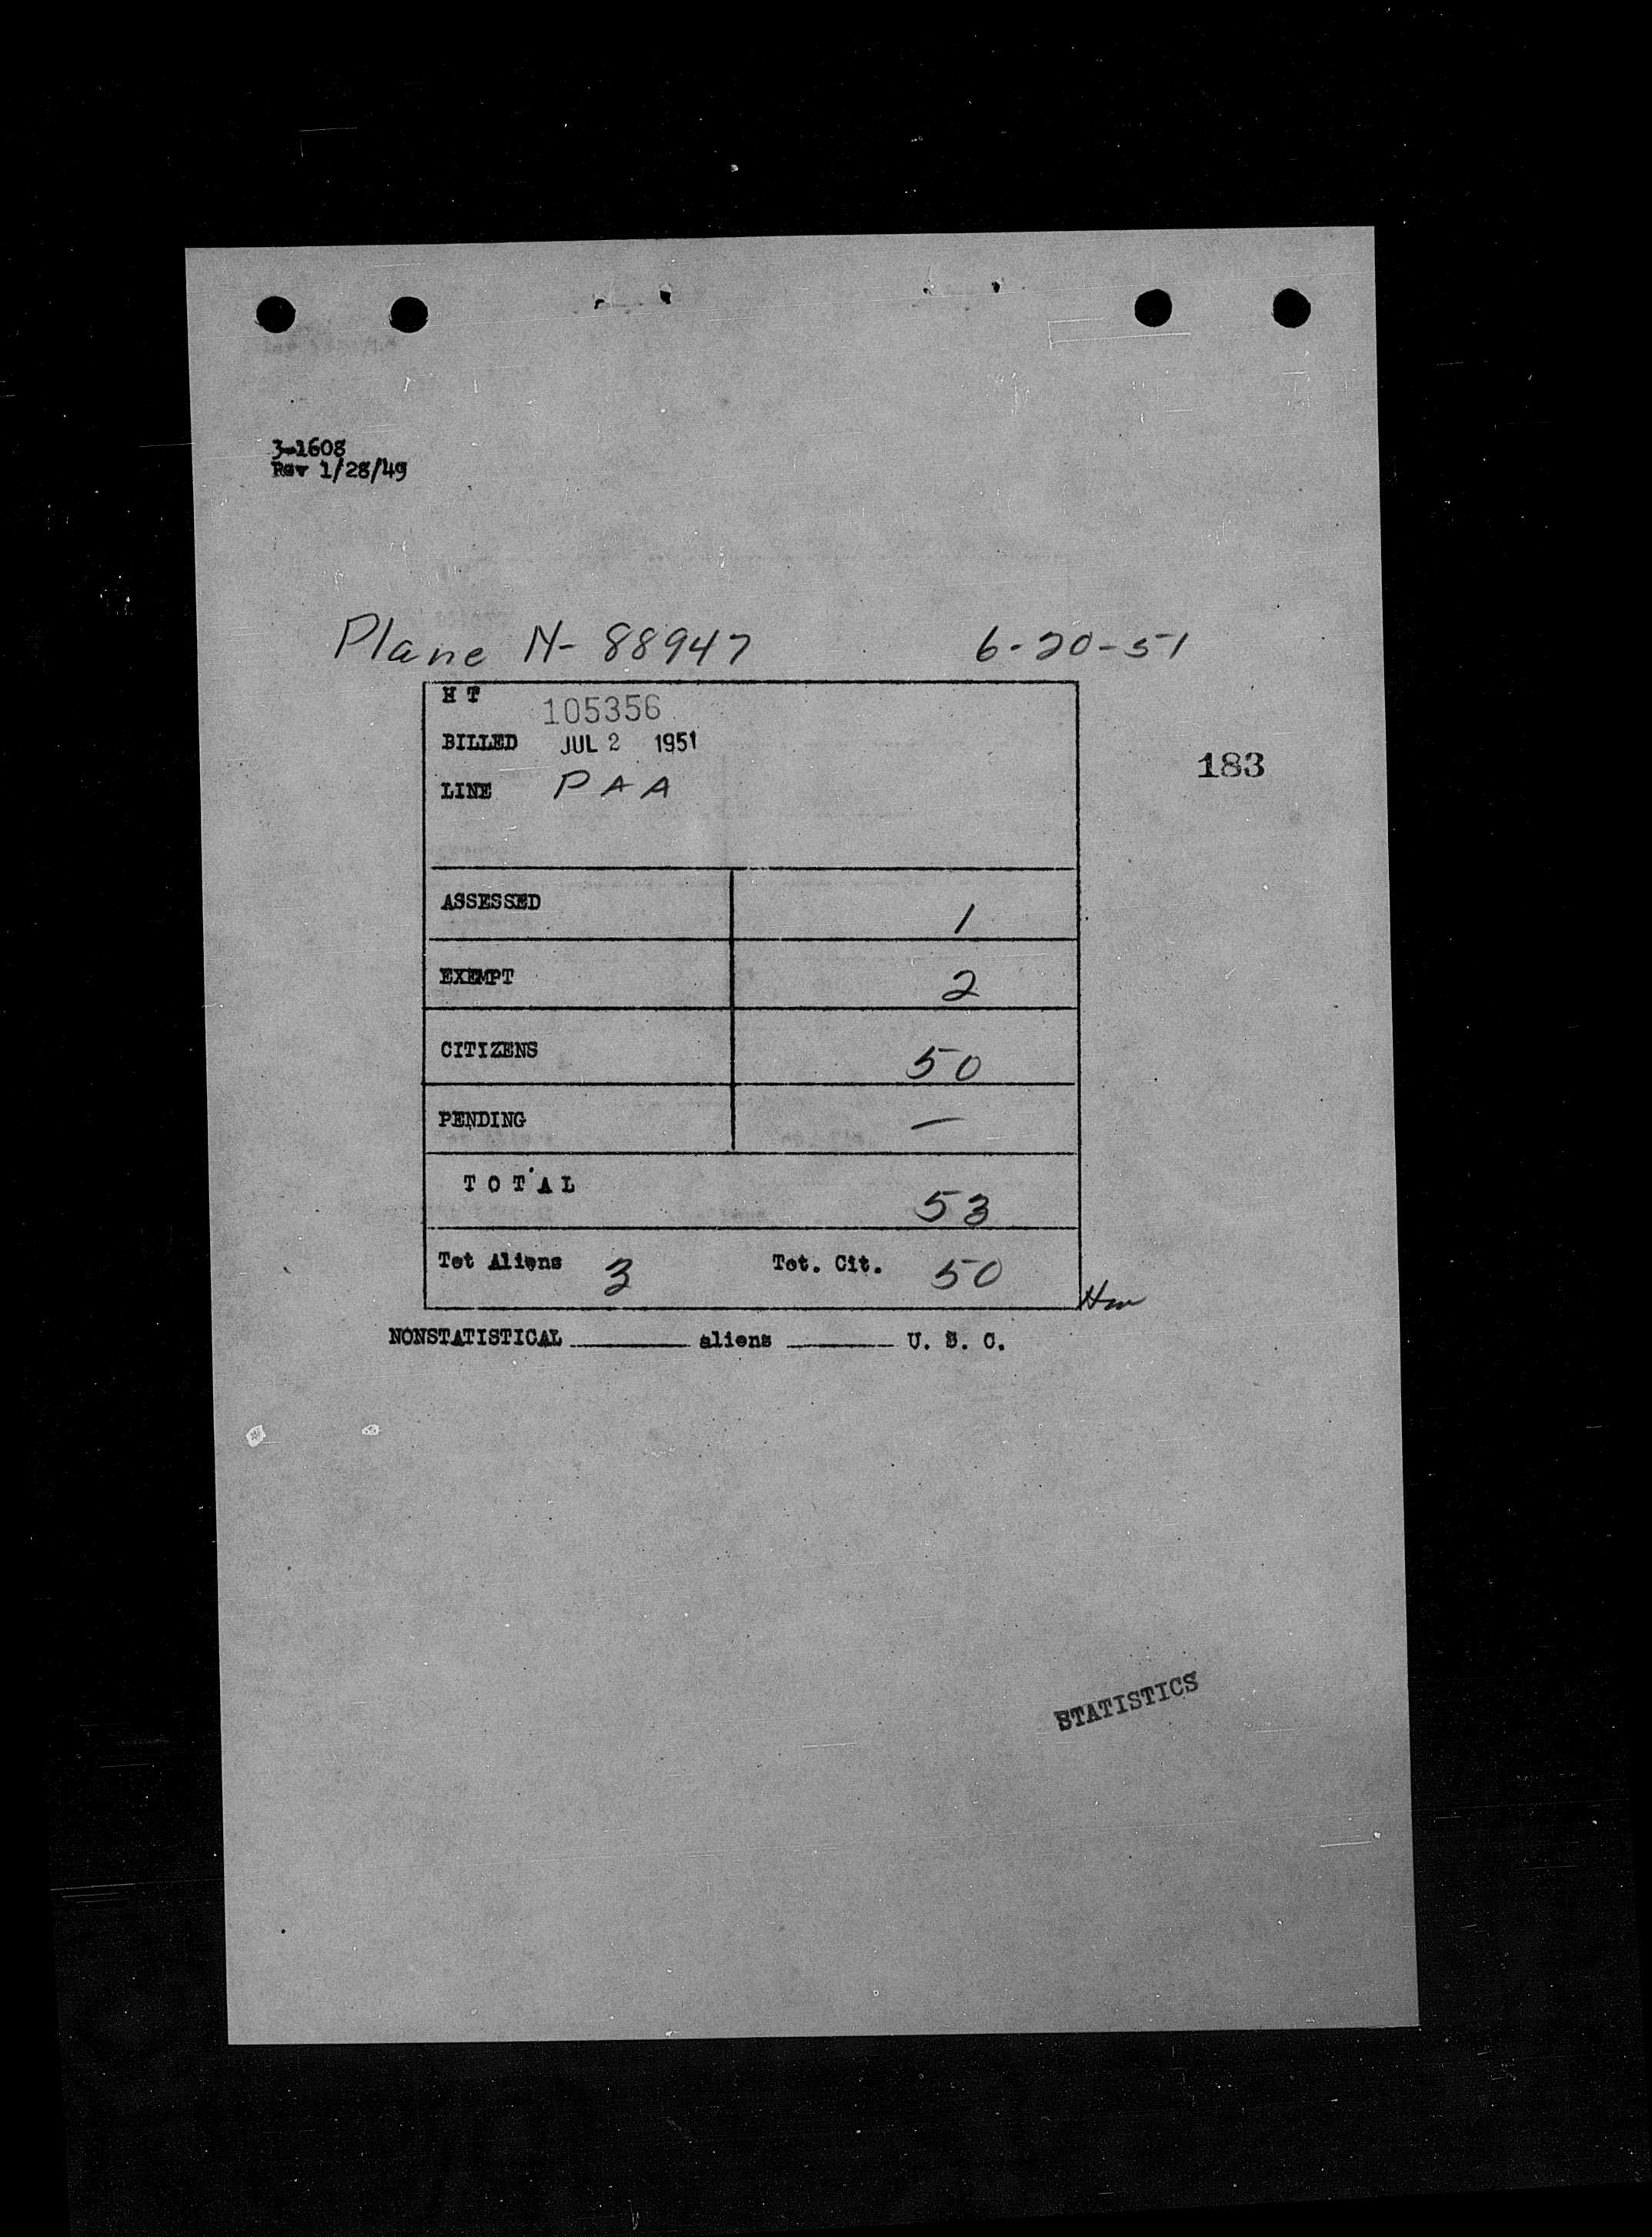 3-1608
Rev 1/28/49
Plane N-88947 6-20-51
H T 105356
BILLED JUL 2 1951
183
LINE PAA
ASSESSED 1
EXEMPT 2
CITIZENS 50
PENDING —
TOTAL 53
Tot Aliens 3 Tot. Cit. 50
NONSTATISTICAL ________ aliens ________ U. S. C.
STATISTICS